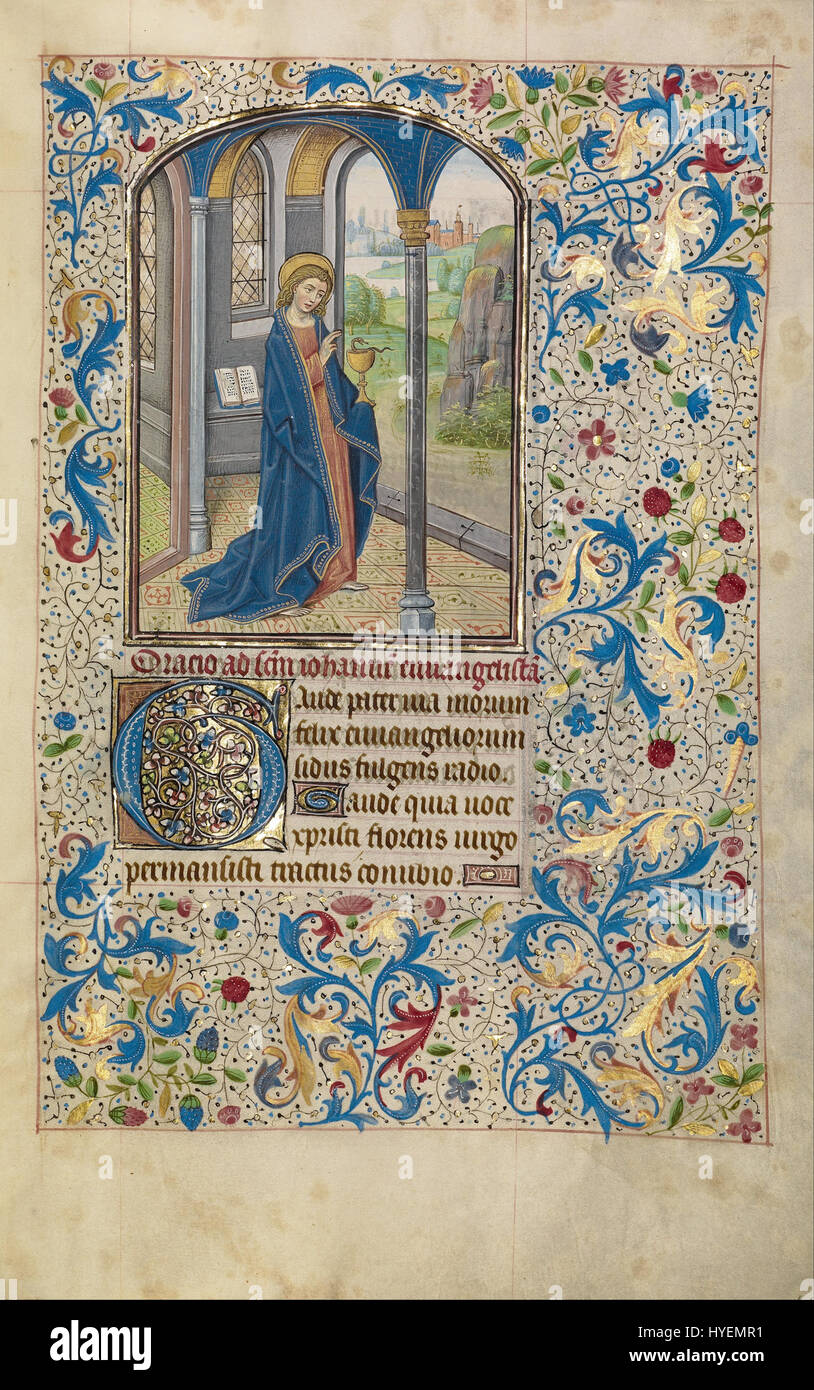 Oracio ad scm iohannem ewangelistā
Gaude pater via morum
felix ewangeliorum
sidus fulgens radio.
Gaude quia voce
xpristi florens virgo
permansisti tractus conubio.
alamy
Image ID: HYEMR1
www.alamy.com